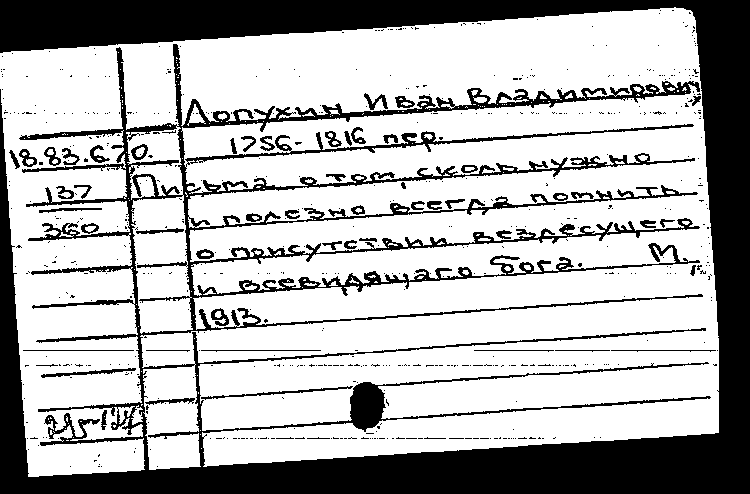 Лопухин, Иван Владимирович
18.83.670. 1756-1816, пер.
137 Письма о том, сколь нужно
360 и полезно всегда помнить
о присутствии вездесущего
и всевидящаго бога. М.,
1913.